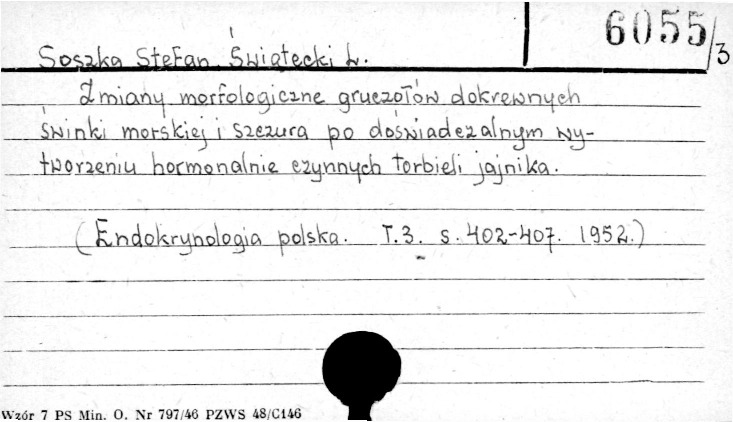 6055/3
Soszka Stefan. Świątecki W.
Zmiany morfologiczne gruczołów dokrewnych
świnki morskiej i szczura po doświadczalnym wy-
tworzeniu hormonalnie czynnych torbieli jajnika.
(Endokrynologia polska. T.3. s. 402-407. 1952.)
Wzór 7 PS Min. O. Nr 797/46 PZWS 48/C146